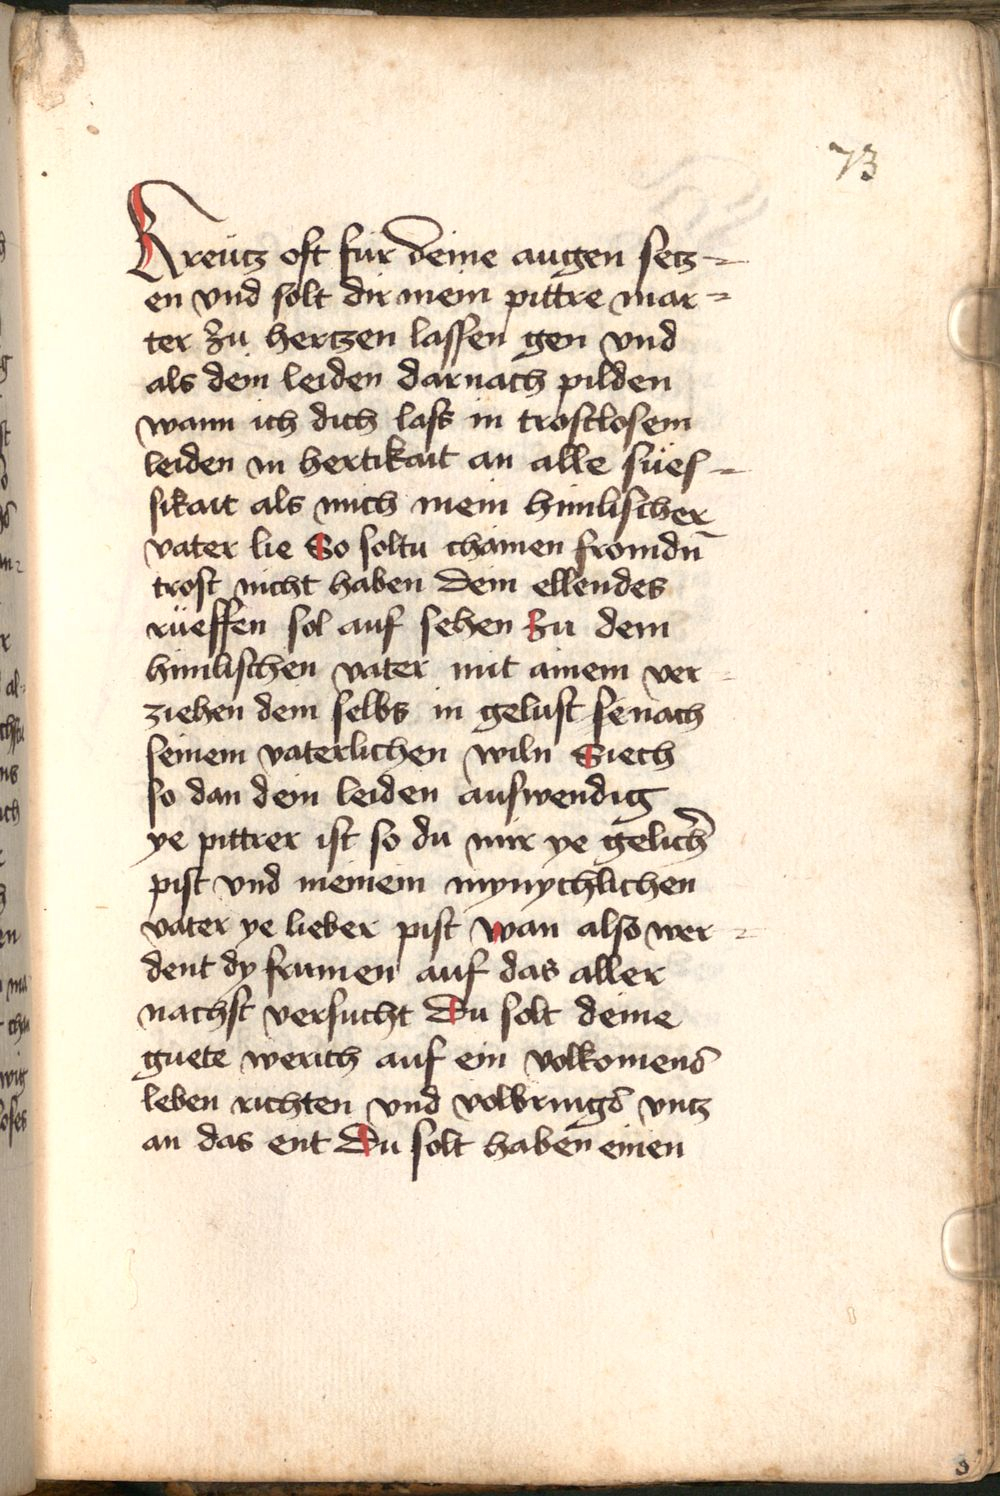 73
Kreutz oft fur deine augen setz=
en vnd solt dir mein pittre mar=
ter zu hertzen lassen gen vnd
als dein leiden darnach pilden
wann ich dich lass in trostlosem
leiden in hertikait an alle sües=
sikait als mich mein himlischer
vater lie So soltu chainen fromdn̄
trost nicht haben dein ellendes
rüeffen sol auf sehen zu dem
himlischen vater mit ainem ver=
ziehen dein selbs in gelust senach
seinem vaterlichen wiln Siech
so dan dein leiden auswendig
ye pittrer ist so du mir ye gelich̄
pist vnd meinem mynychlichen
vater ye lieber pist wan also wer=
dent dy frumen auf das aller
nachst versucht Du solt deine
guete werich auf ein volkomens
leben richten vnd volbrings vntz
an das ent Du solt haben einen